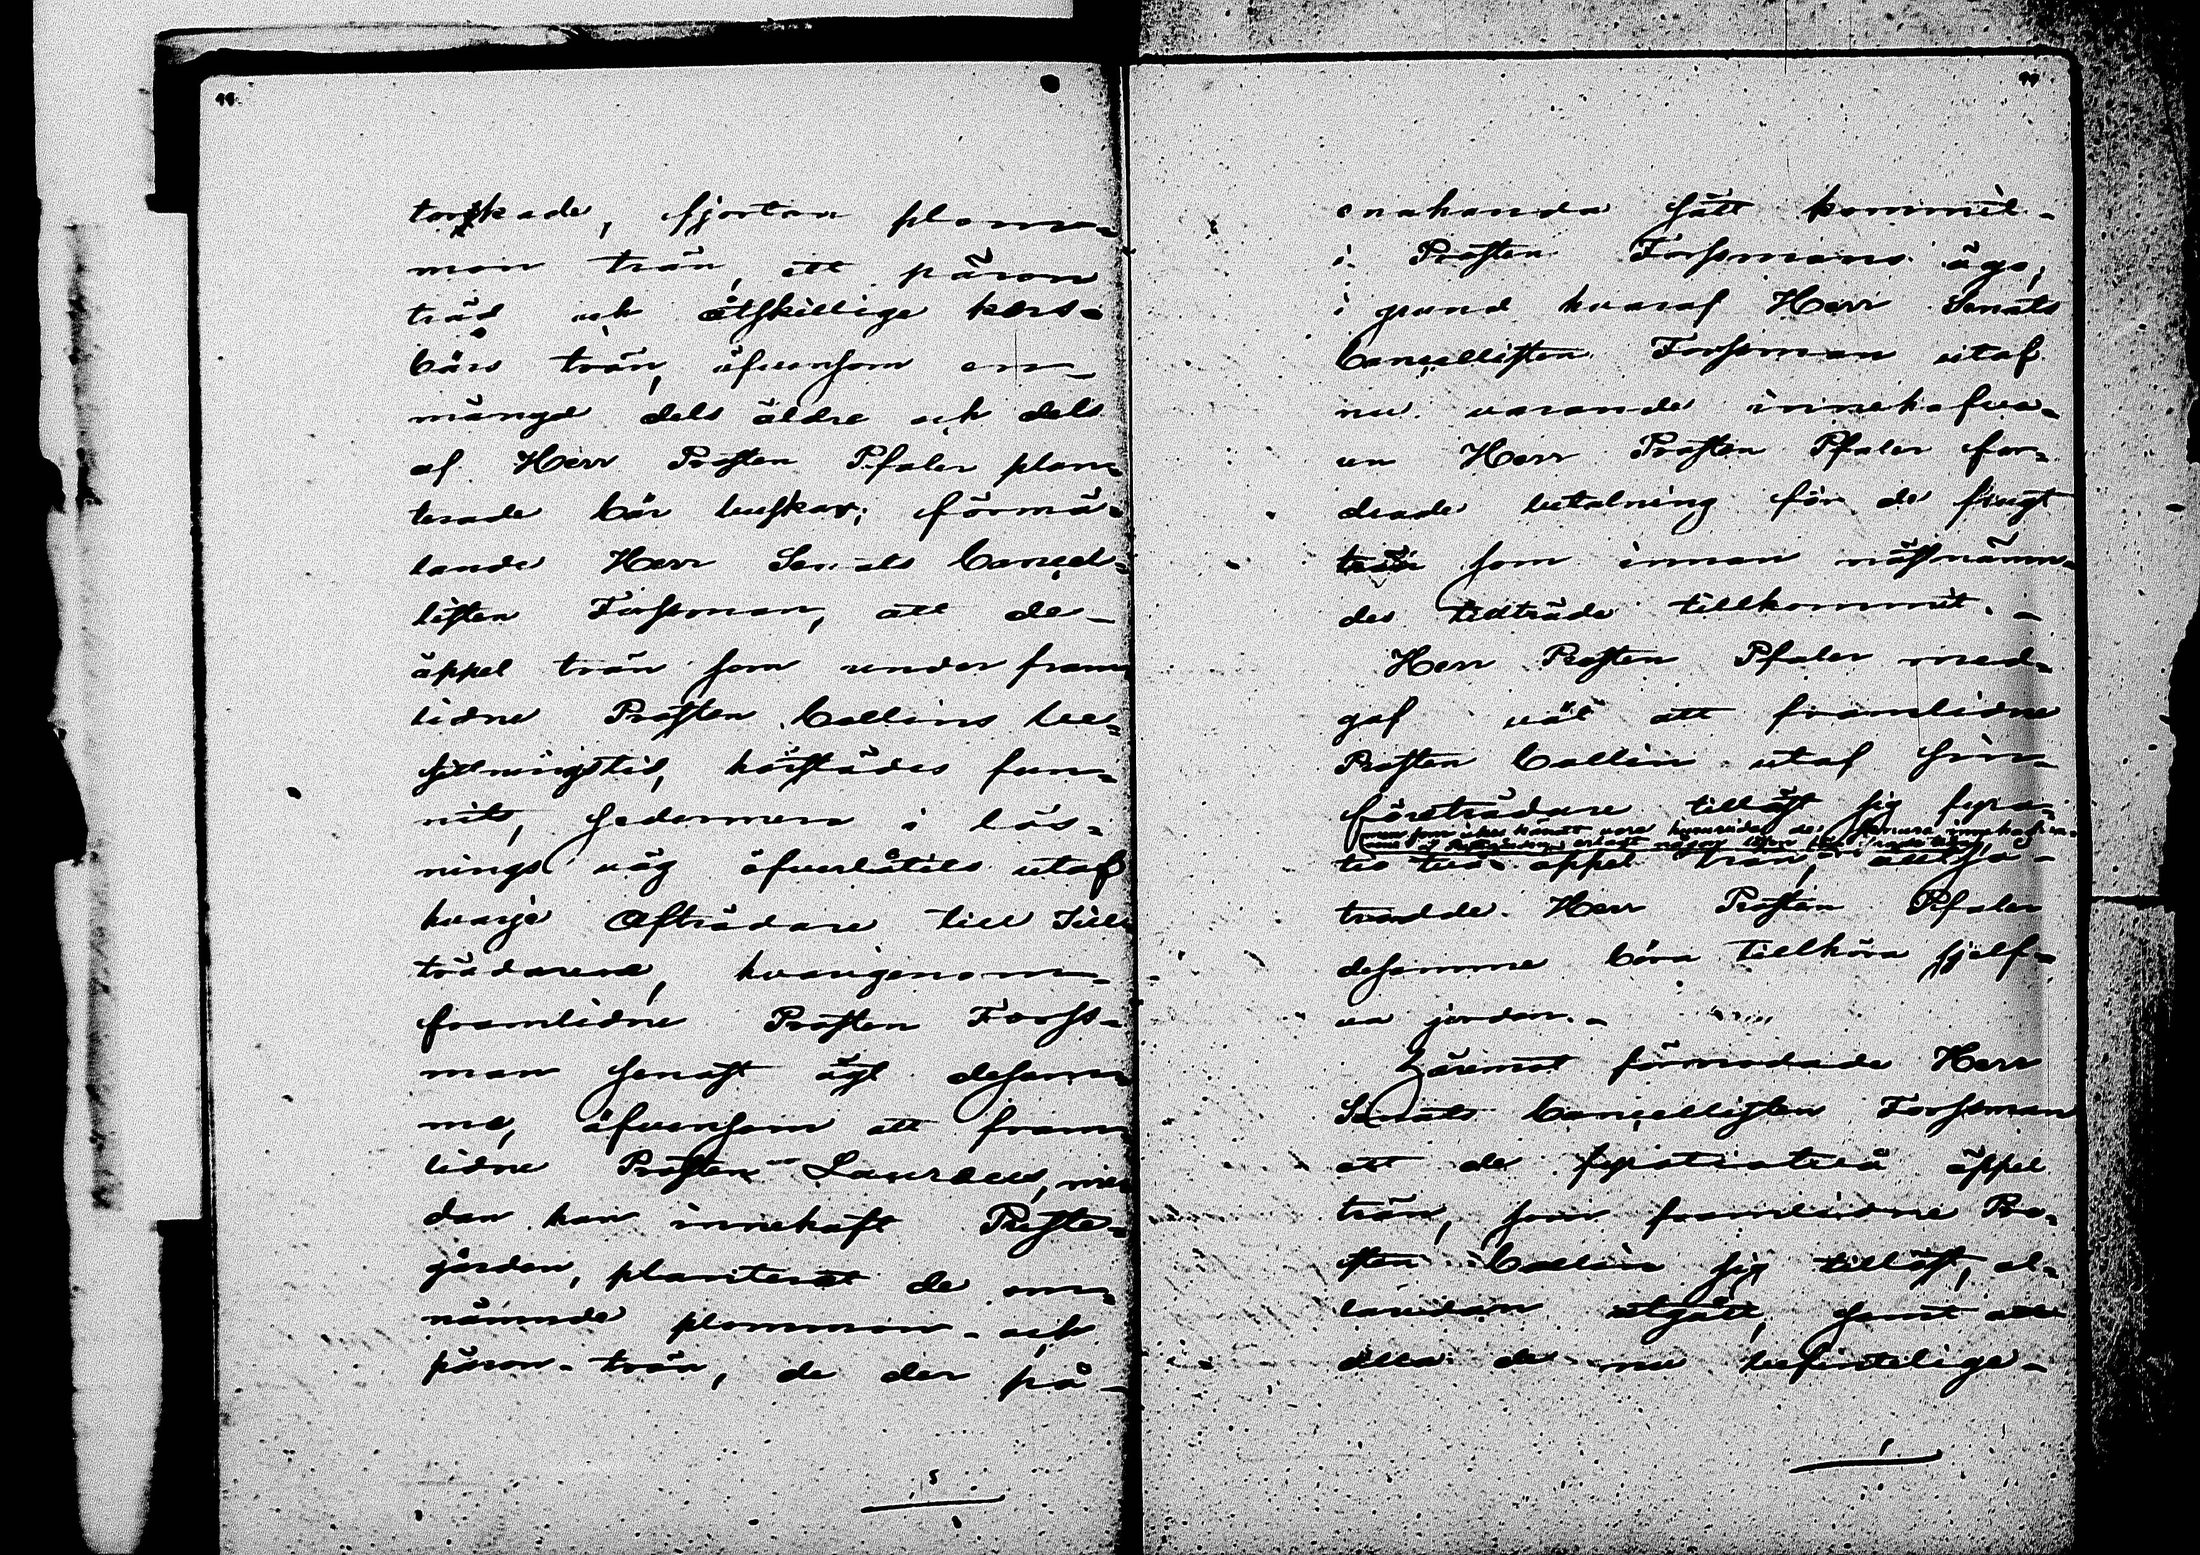 torkade, fjorton plom-
mon trän, ett päron
träd och åtskillige kers-
bärs trän, äfvensom en
mängd dels äldre och dels
af Herr Prosten Pfaler plan-
terade bär buskar; förmä-
lande Herr Senats Cancel-
listen Forssman, att de
äppel trän som under fram-
lidne Prosten Collins be-
sittningstid, härstädes fun-
nits, sedermera i lös-
nings väg öfverlåtits utaf
hvarje Afträdare till Till-
trädaren, hvarigenom
framlidne Prosten Forss-
man senast ägt dessam-
me, äfvensom att fram-
lidne Prosten Lauræus, me-
dan han innehaft Preste-
gården, planterat de om-
nämnde plommon- och
päron-trän, de der på
enahanda sätt kommit
i Prosten Forssmans ägo;
i grund hvaraf Herr Senats
Cancellisten Forssman utaf
nu varande innehafva-
ren Herr Prosten Pfaler for-
drade betalning för de frugt
trän som innan nästnämn-
des tillträde tillkommit.
Herr Prosten Pfaler med-
gaf väl att framlidne
Prosten Collin utaf sin
företrädare tillöst sig fyra-
tio två äppel trän, allså
trodde Herr Prosten Pfaler
dessamme böra tillhöra sjelf-
va jorden.
Häremot förmodade Herr
Senats Cancellisten Forssman
att de fyratiotvå äppel
trän, som framlidne Pro-
sten Collin sig tillöst, al-
laredan utgått, samt att
alla de nu befintelige